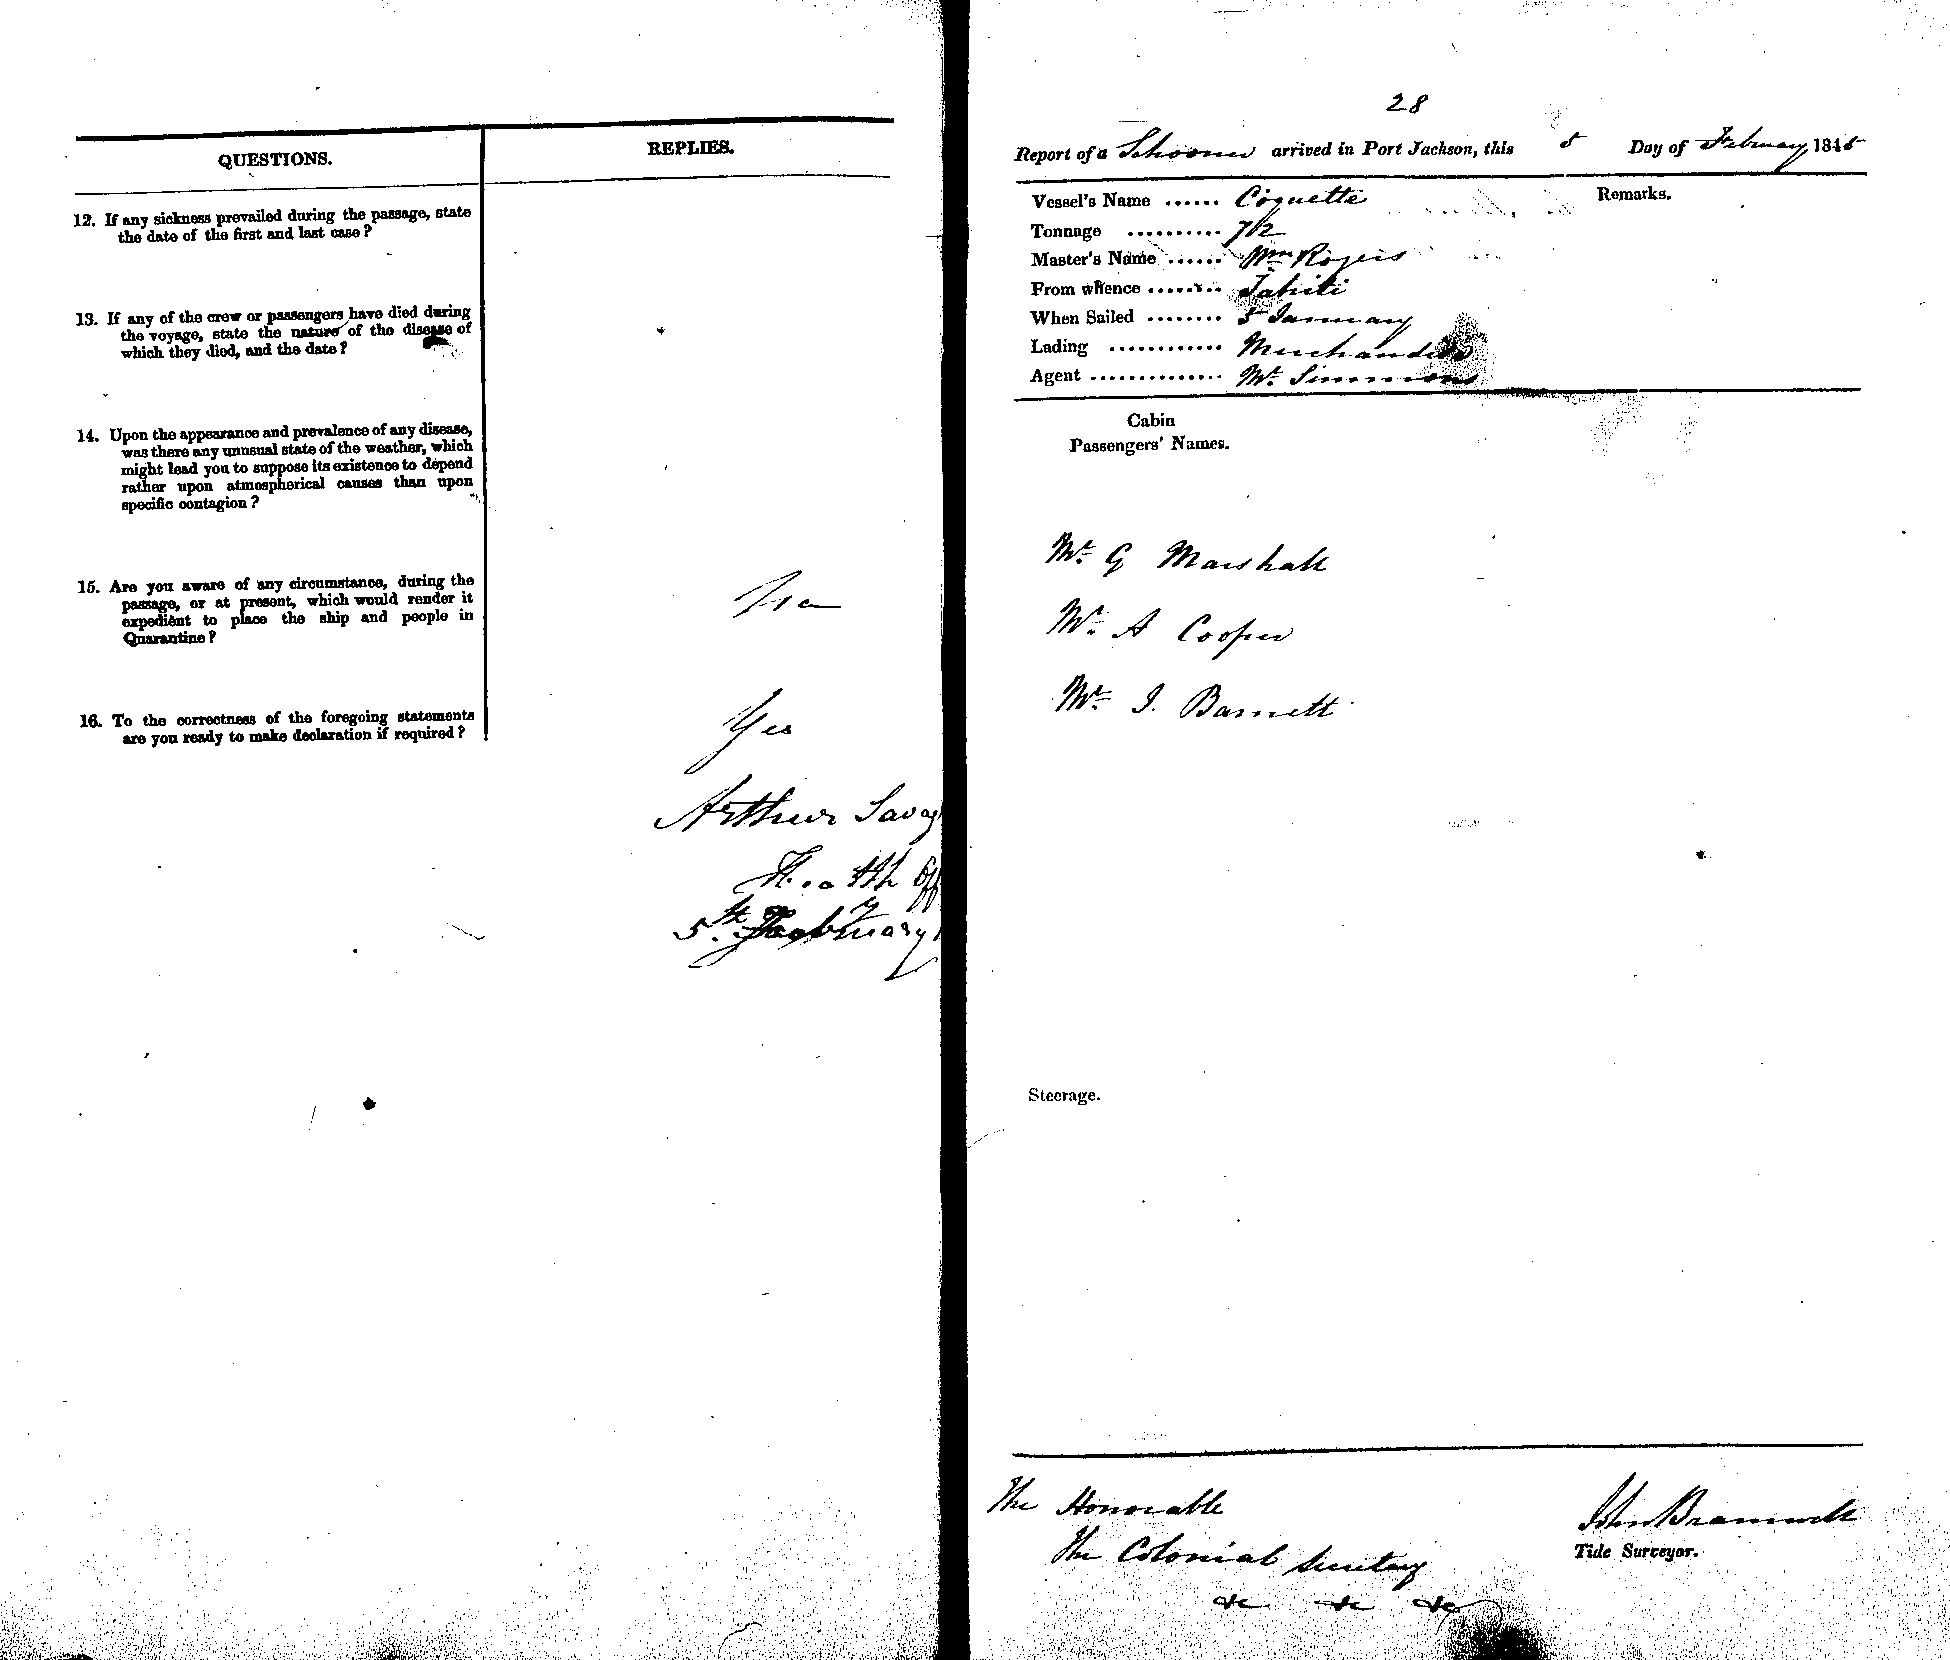 QUESTIONS.
REPLIES.
12. If any sickness prevailed during the passage, state
the date of the first and last case?
13. If any of the crew or passengers have died during
the voyage, state the nature of the disease of
which they died, and the date?
14. Upon the appearance and prevalence of any disease,
was there any unusual state of the weather, which
might lead you to suppose its existence to depend
rather upon atmospherical causes than upon
specific contagion?
15. Are you aware of any circumstance, during the
passage, or at present, which would render it
expedient to place the ship and people in
Quarantine?
16. To the correctness of the foregoing statements
are you ready to make declaration if required?
Yes
Arthur Savag
Health Off
5th February
28
Report of a Schooner arrived in Port Jackson, this 5 Day of February 1845
Vessel's Name ...... Coquette
Remarks.
Tonnage .......... 7/2
Master's Name ...... Wm Rogers
From whence ........ Tahiti
When Sailed ........ 5 January
Lading ............ Merchandise
Agent .............. Mr. Simmons
Cabin
Passengers' Names.
Mr. G Marshall
Mr. A Cooper
Mr. I. Barnett
Steerage.
The Honorable
The Colonial Secretary
&c &c &c
John Bramwell
Tide Surveyor.